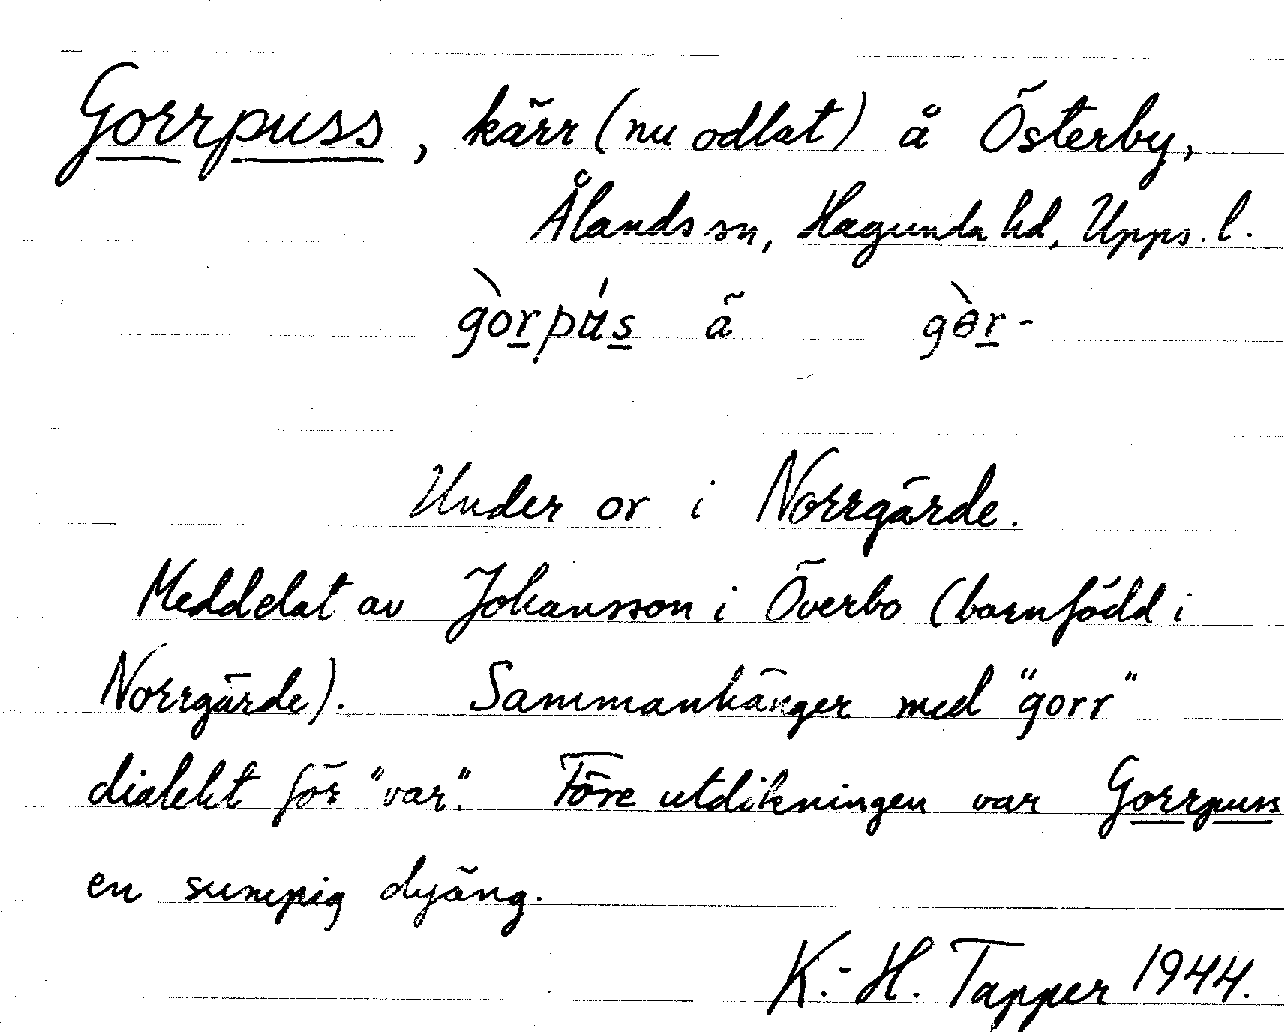 Gorrpuss, kärr (nu odlat) å Österby,
Ålands sn, Hagunda hd, Upps. l.
gòrpús å gɵ̀r-
Under or i Norrgärde.
Meddelat av Johansson i Överbo (barnfödd i
Norrgärde). Sammanhänger med "gorr"
dialekt för "var". Före utdikningen var Gorrpuss
en sumpig dyäng.
K.-H. Tapper 1944.